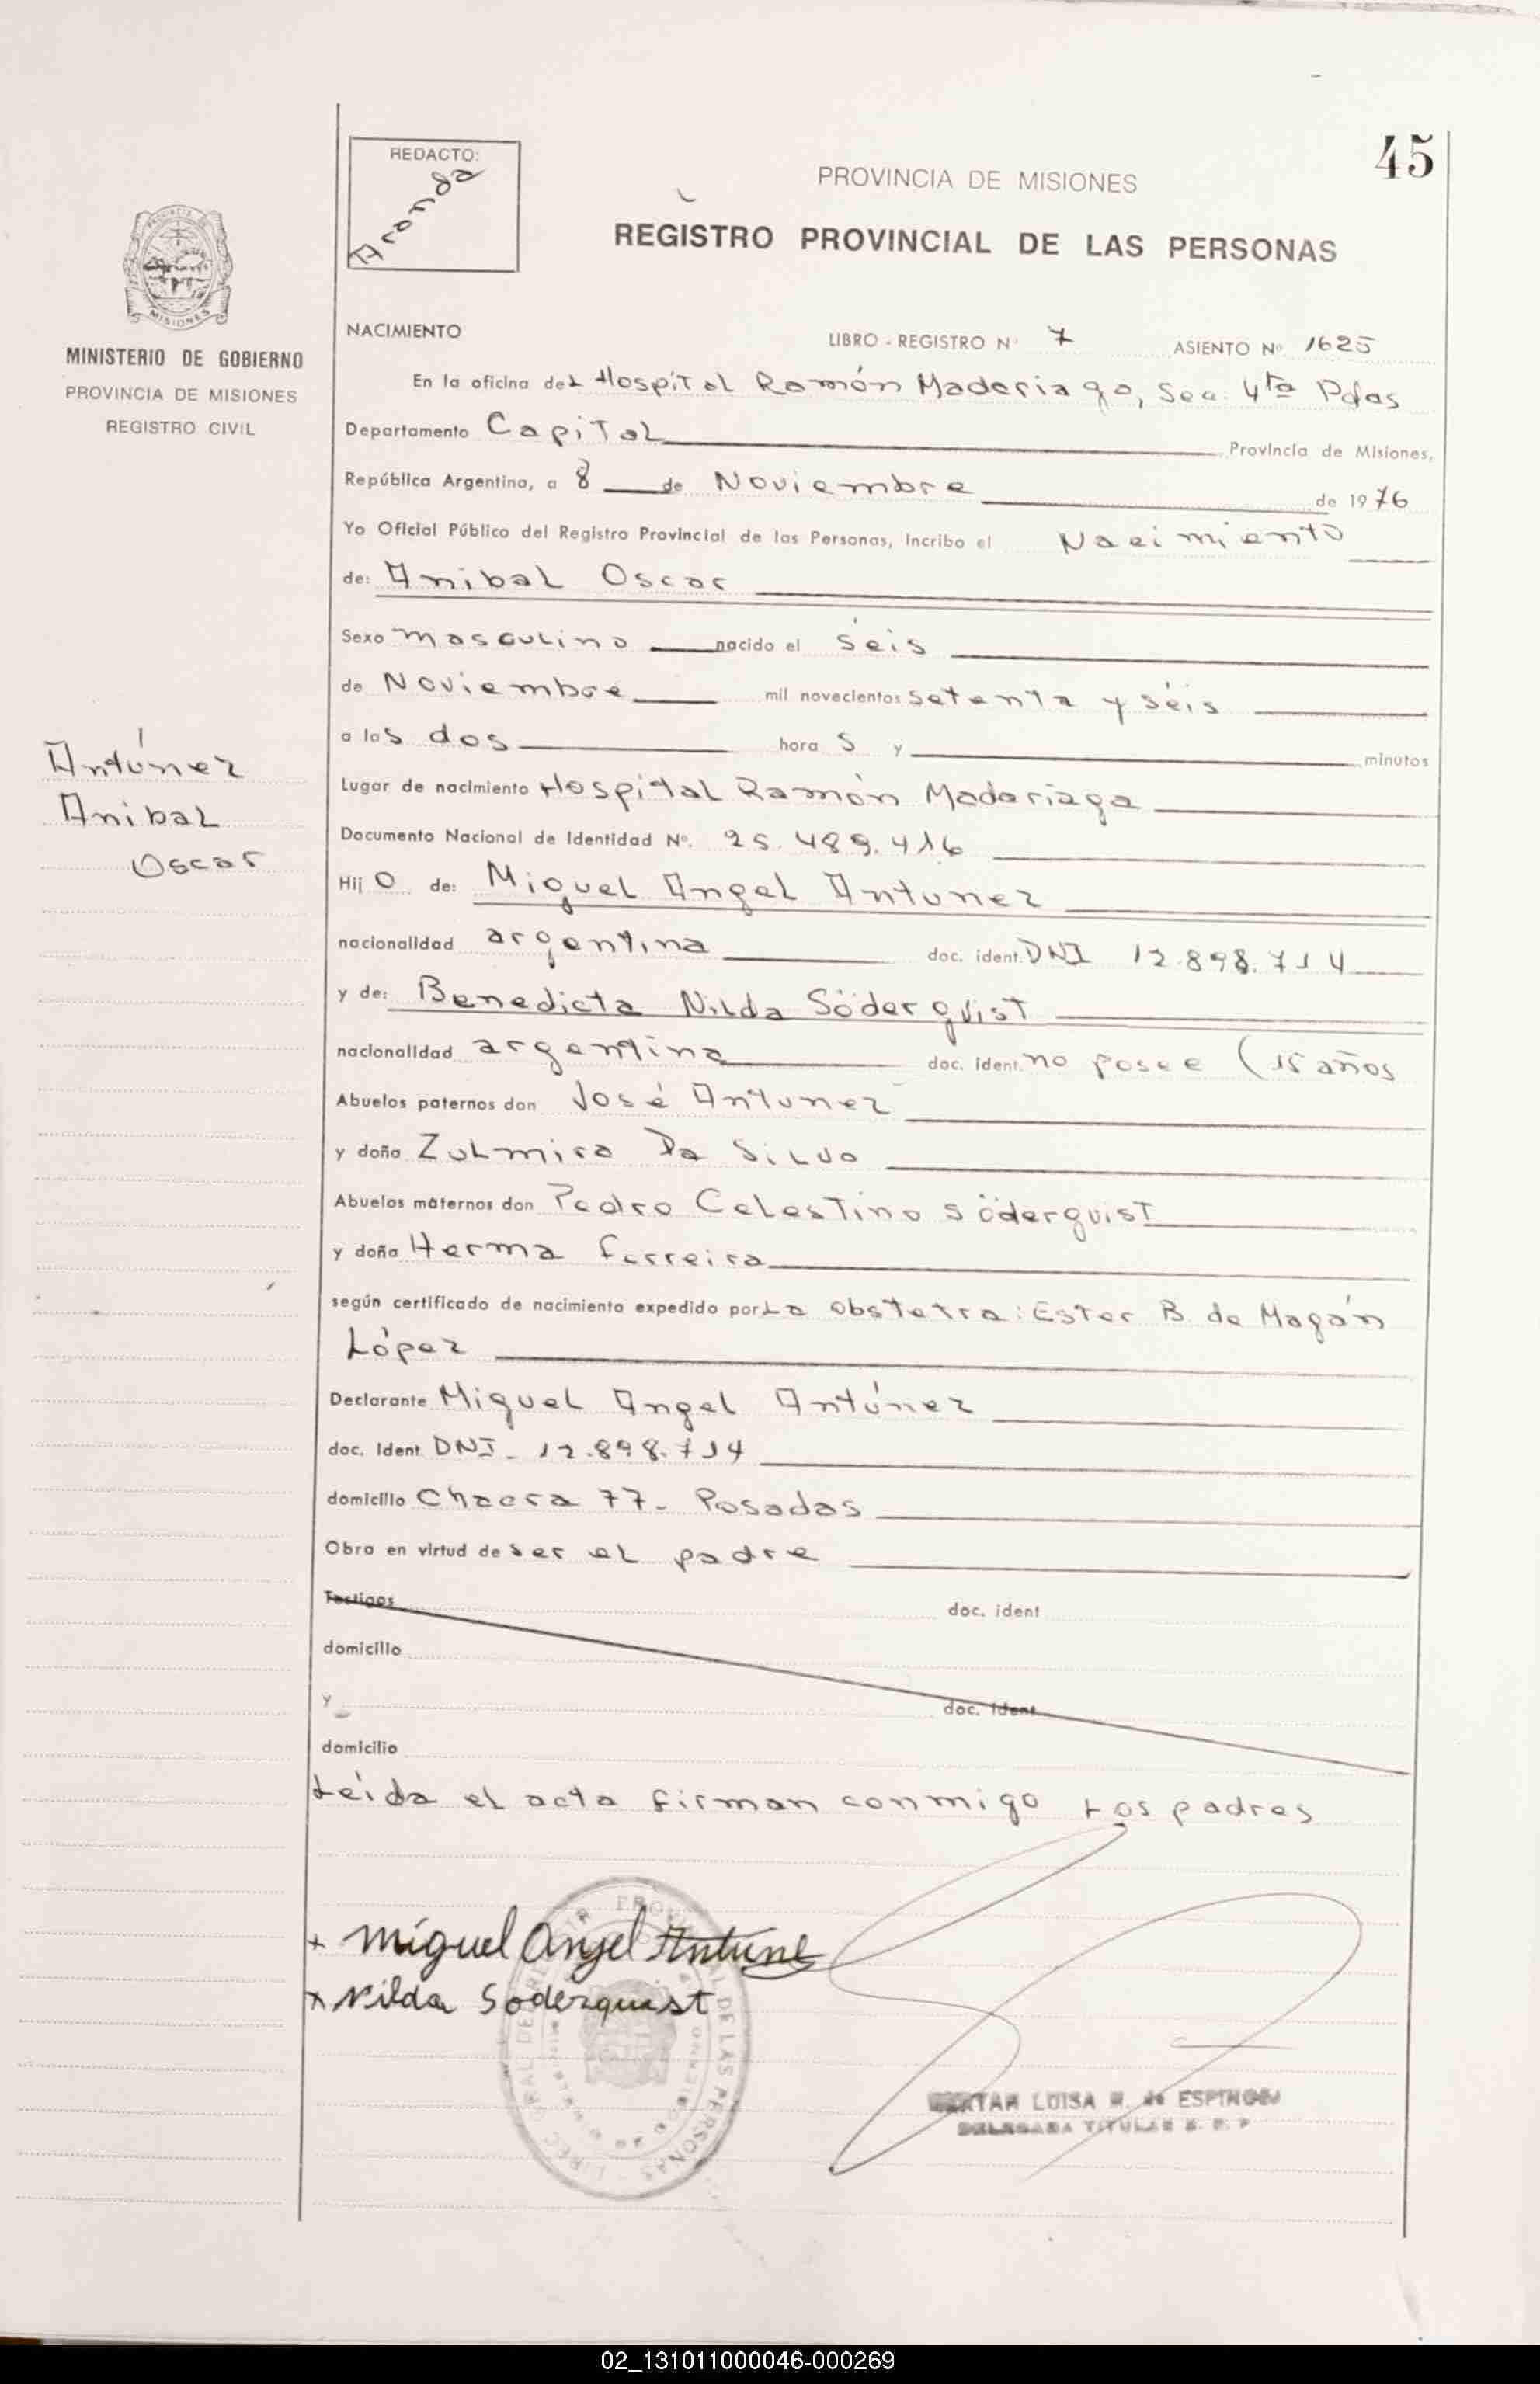 45
REDACTO:
PROVINCIA DE MISIONES
REGISTRO PROVINCIAL DE LAS PERSONAS
MISIONES
MINISTERIO DE GOBIERNO
PROVINCIA DE MISIONES
REGISTRO CIVIL
NACIMIENTO LIBRO - REGISTRO Nº 7 ASIENTO Nº 1625
En la oficina del Hospital Ramón Maderiaga, Sec. 4ta Pdas
Departamento Capital Provincia de Misiones,
República Argentina, a 8 de Noviembre de 1976
Yo Oficial Público del Registro Provincial de las Personas, incribo el Nacimiento
de: Anibal Oscar
Sexo masculino nacido el séis
de Noviembre mil novecientos setenta y séis
a las dos hora s y minutos
Antúnez
Anibal
Oscar
Lugar de nacimiento Hospital Ramón Madariaga
Documento Nacional de Identidad Nº. 25.489.416
Hij o de: Miguel Angel Antunez
nacionalidad argentina doc. ident. DNI 12.898.714
y de: Benedicta Nilda Söderquist
nacionalidad argentina doc. ident. no posee (15 años
Abuelos paternos don José Antunez
y doña Zulmira Da Silva
Abuelos maternos don Pedro Celestino Söderquist
y doña Herma Ferreira
según certificado de nacimiento expedido por La obstetra: Ester B. de Magán
López
Declarante Miguel Angel Antúnez
doc. Ident. DNI - 12.898.714
domicilio Chacra 77 - Posadas
Obra en virtud de ser el padre
Testigos doc. ident
domicilio
y doc. ident
domicilio
Leída el acta firman conmigo los padres
x Miguel Angel Antune
x Nilda Soderquist
LUISA M. de ESPINOSA
DELEGADA TITULAR R. P. P
02_131011000046-000269